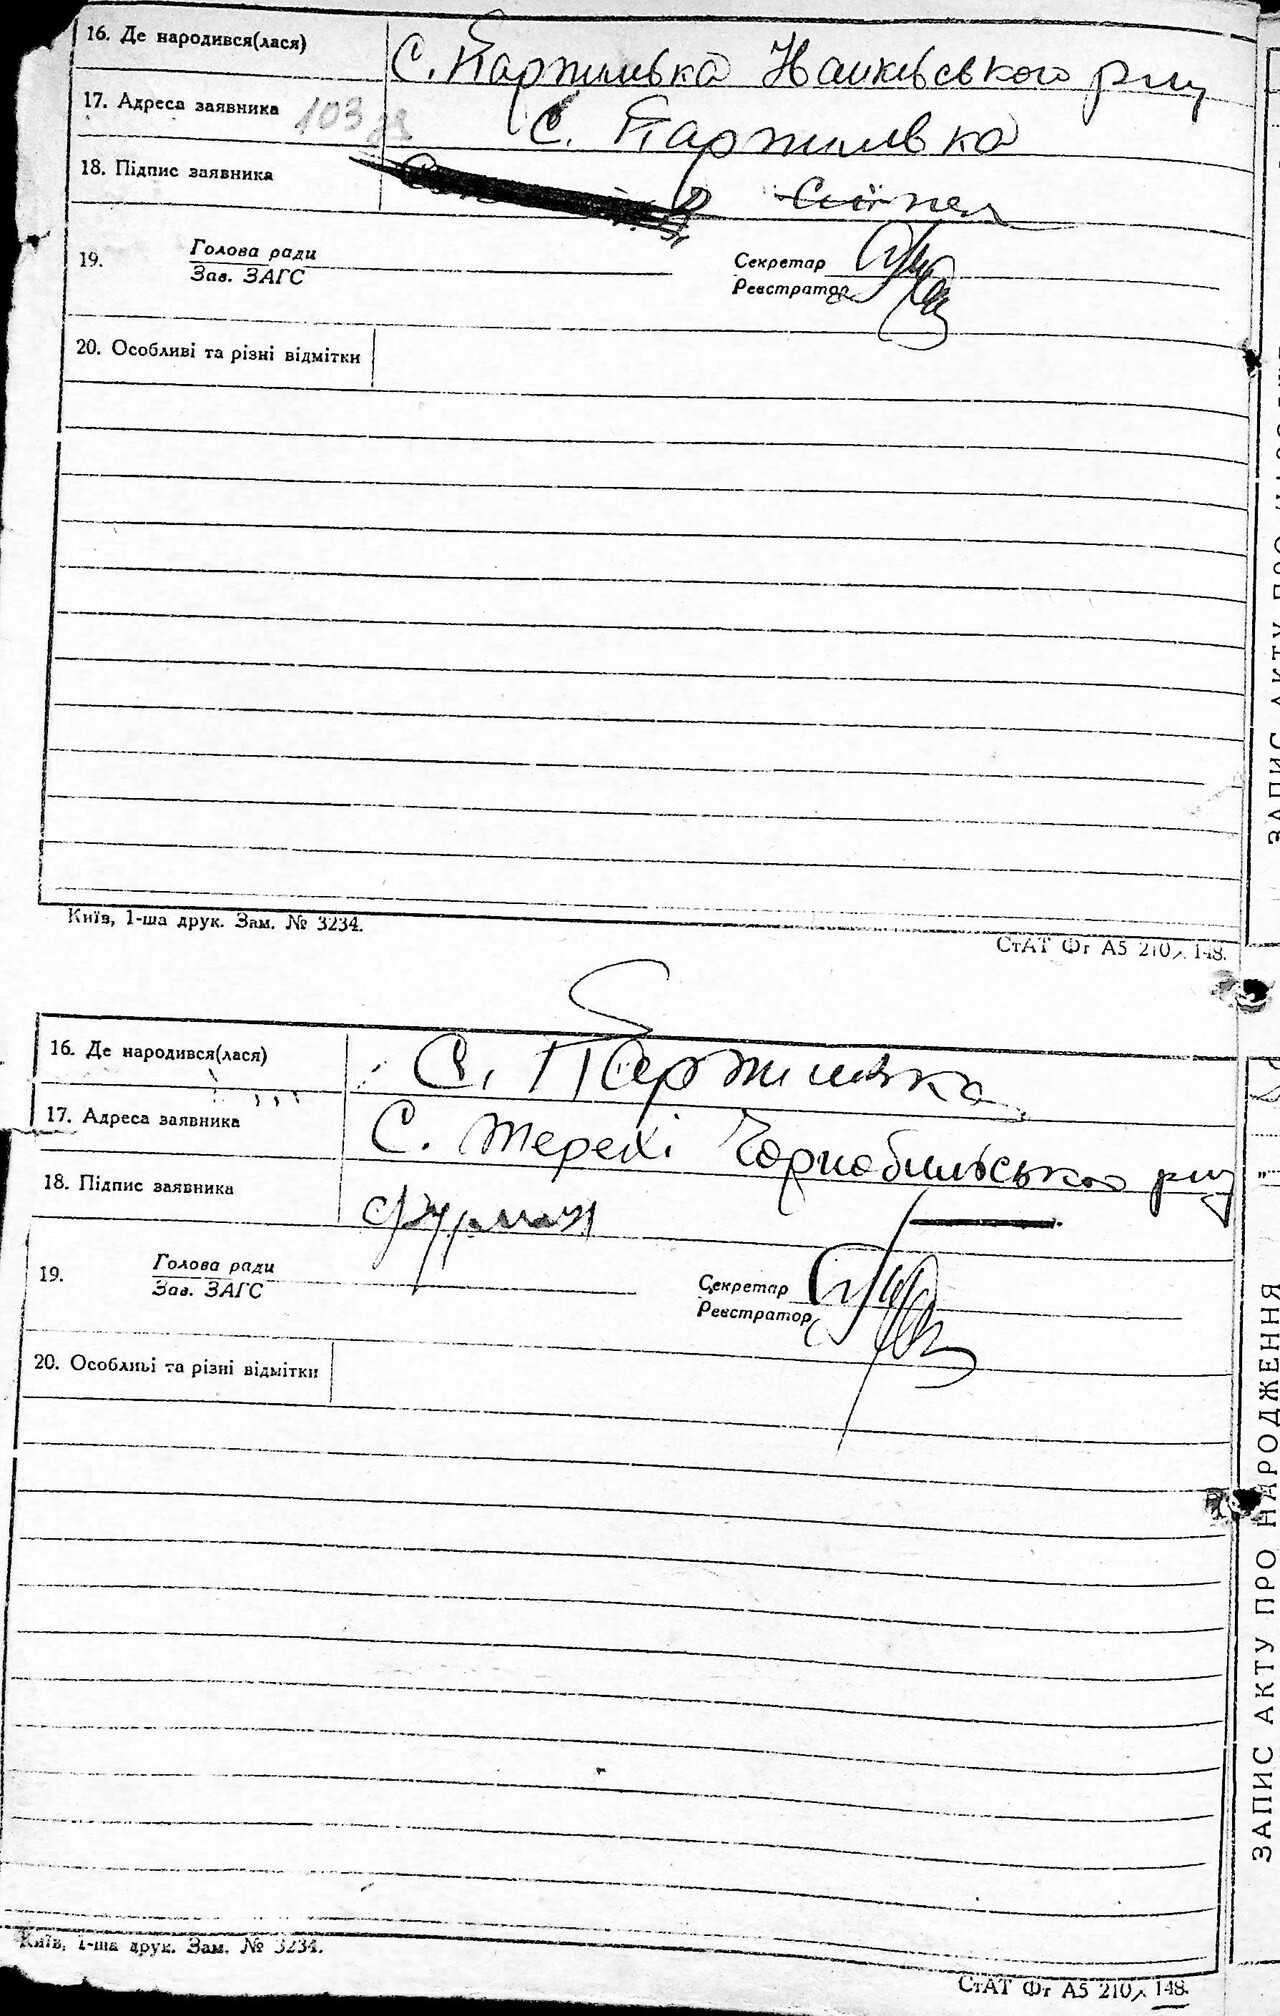 16. Де народився(лася) С. Паржилівка Наиквського р-ну
17. Адреса заявника 103 С. Паржилівка
18. Підпис заявника
19. Голова ради
Зав. ЗАГС
Секретар
Реєстратор
20. Особливі та різні відмітки
Київ, 1-ша друк. Зам. № 3234.
СтАТ Фг А5 210×148.
16. Де народився(лася) С. Паржилівка
17. Адреса заявника С. Терехі Чорнобильського р-ну
18. Підпис заявника Фурман
19. Голова ради
Зав. ЗАГС
Секретар
Реєстратор
20. Особливі та різні відмітки
Київ, 1-ша друк. Зам. № 3234.
СтАТ Фг А5 210×148.
ЗАПИС АКТУ ПРО НАРОДЖЕННЯ